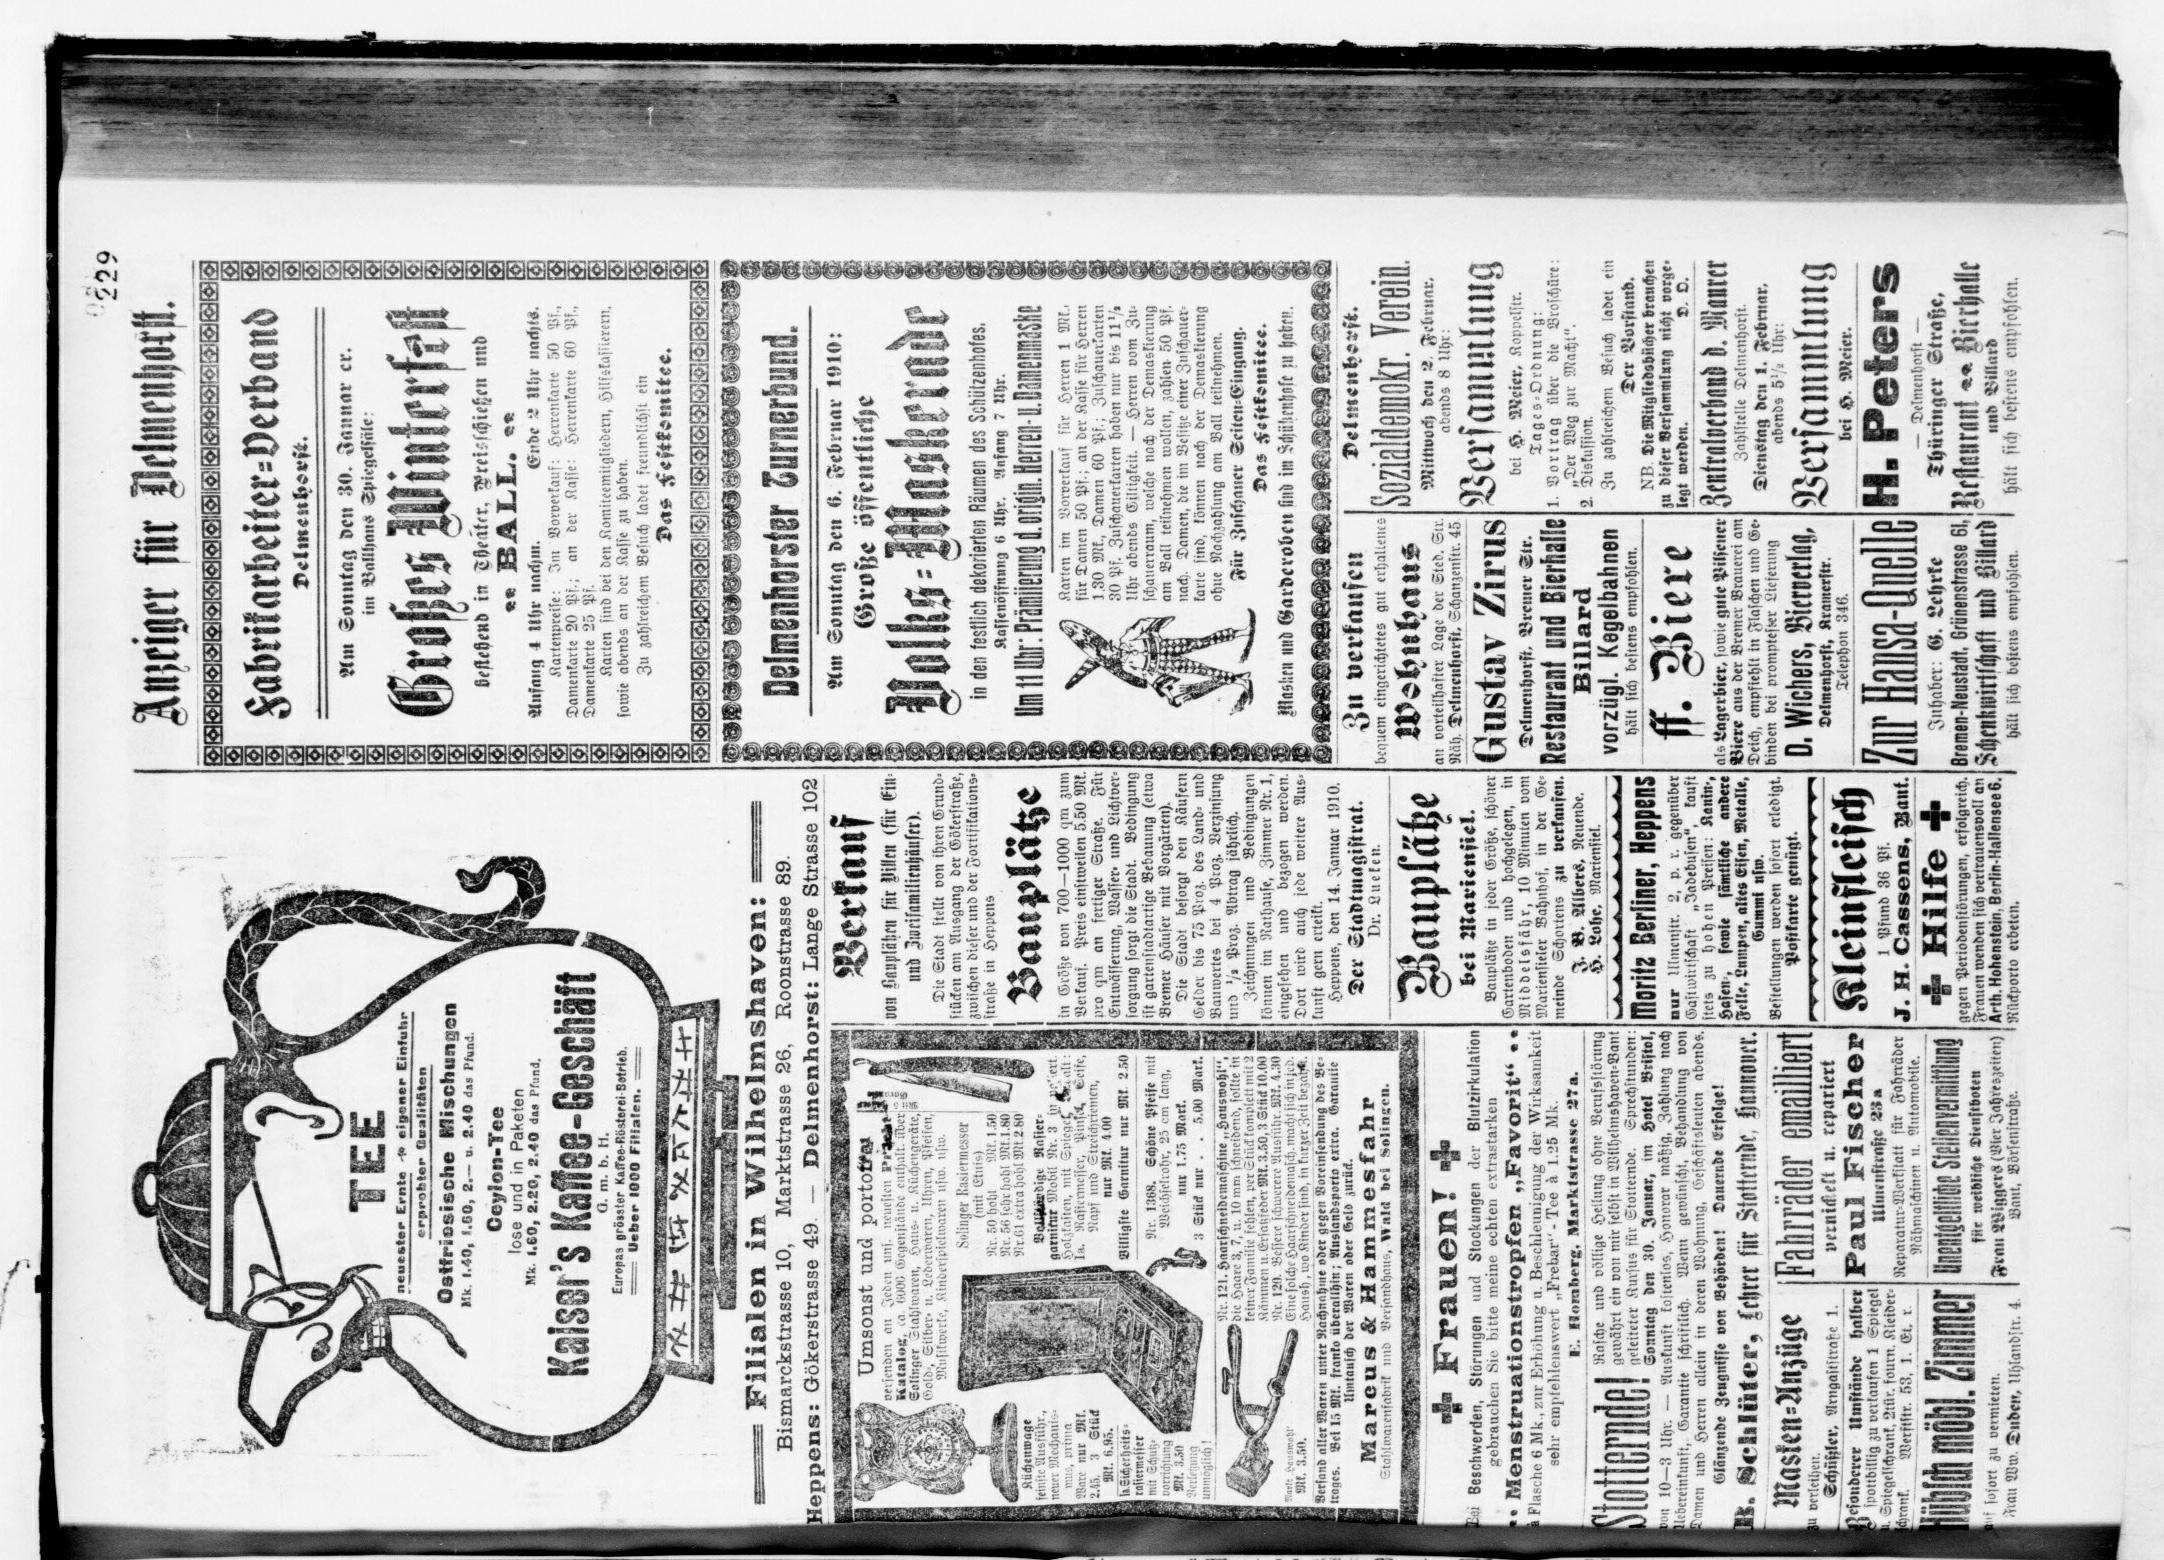 229
TEE
neuester Ernte eigener Einfuhr
erprobter Qualitäten
Ostfriesische Mischungen
Mk. 1.40, 1.60, 2.— u. 2.40 das Pfund.
Ceylon-Tee
lose und in Paketen
Mk. 1.60, 2.20, 2.40 das Pfund.
Kaiser's Kaffee-Geschäft
G. m. b. H.
Europas grösster Kaffee-Rösterei-Betrieb.
Ueber 1000 Filialen.
Filialen in Wilhelmshaven:
Bismarckstrasse 10, Marktstrasse 26, Roonstrasse 89.
Heppens: Gökerstrasse 49. — Delmenhorst: Lange Strasse 102
Umsonst und portofrei
versenden an Jeden uns. neuesten
Katalog, ca. 6000 Gegenstände enthalt. über
Solinger Stahlwaren, Haus- u. Küchengeräte,
Gold-, Silber- u. Lederwaren, Uhren, Pfeifen,
Musikwerke, Kinderspielwaren usw. usw.
Solinger Rasiermesser
(mit Etuis)
Nr. 50 hohl Mk. 1.50
Nr. 56 sehr hohl Mk. 1.80
Nr. 61 extra hohl Mk. 2.80
Billigste Garnitur nur Mk 2.50
Nr. 1368. Schöne Pfeife mit
Weichselrohr, 25 cm lang,
nur 1.75 Mark.
3 Stück nur . . 5.00 Mark.
Küchenwage
feinste Ausführ.,
neuer Mechanis-
mus, prima
Ware nur Mk.
2.45, 3 Stück
Mk. 6.95.
1a. Sicherheits-
rasiermesser
mit Schutz-
vorrichtung
Mk. 3.50
Verletzung
unmöglich!
Marke Hauswohl
Mk. 3.50.
Nr. 121. Haarschneidemaschine „Hauswohl“,
die Haare 3, 7, u. 10 mm schneidend, sollte in
keiner Familie fehlen, per Stück komplett mit 2
Kämmen u. Ersatzfeder Mk. 3.50, 3 Stück 10.00
Nr. 129. Bessere schwerere Ausführ. Mk. 4.30
Versand aller Waren unter Nachnahme oder gegen Voreinsendung des Be-
trages. Bei 15 Mk. franko überallhin; Auslandsporto extra. Garantie
Umtausch der Waren oder Geld zurück.
Marcus & Hammesfahr
Stahlwarenfabrik und Versandhaus, Wald bei Solingen.
Frauen!
Bei Beschwerden, Störungen und Stockungen der Blutzirkulation
gebrauchen Sie bitte meine echten extrastarken
Menstruationstropfen „Favorit“
à Flasche 6 Mk., zur Erhöhung u. Beschleunigung der Wirksamkeit
sehr empfehlenswert „Frebar“-Tee à 1.25 Mk.
E. Homberg, Marktstrasse 27a.
Stotternde!
Rasche und völlige Heilung ohne Berufsstörung
gewährt ein von mir selbst in Wilhelmshaven-Bant
geleiteter Kursus für Stotternde. Sprechstunden:
Sonntag den 30. Januar, im Hotel Bristol,
von 10—3 Uhr. — Auskunft kostenlos, Honorar mäßig, Zahlung nach
Uebereinkunft, Garantie schriftlich. Wenn gewünscht, Behandlung von
Damen und Herren allein in deren Wohnung, Geschäftsleuten abends.
Glänzende Zeugnisse von Behörden! Dauernde Erfolge!
R. Schlüter, Lehrer für Stotternde, Hannover.
Masken-Anzüge
zu verleihen.
Schüßler, Arngaststraße 1.
Besonderer Umstände halber
spottbillig zu verkaufen 1 Spiegel
u. Spiegelschrank, 2tür. fourn. Kleider-
schrank. Werftstr. 53, 1. Et. r.
Hübsch möbl. Zimmer
auf sofort zu vermieten.
Frau Ww. Duden, Uhlandstr. 4.
Fahrräder emailliert
vernickelt u. repariert
Paul Fischer
Ulmenstraße 23a
Reparatur-Werkstatt für Fahrräder
Nähmaschinen u. Automobile.
Unentgeltliche Stellenvermittlung
für weibliche Dienstboten
Frau Wiggers (Vier Jahreszeiten)
Bant, Börsenstraße.
Verkauf
von Bauplätzen für Villen (für Ein-
und Zweifamilienhäuser).
Die Stadt stellt von ihren Grund-
stücken am Ausgang der Gökerstraße,
zwischen dieser und der Fortifikations-
straße in Heppens
Bauplätze
in Größe von 700—1000 qm zum
Verkauf. Preis einstweilen 5.50 Mk.
pro qm an fertiger Straße. Für
Entwässerung, Wasser- und Lichtver-
sorgung sorgt die Stadt. Bedingung
ist gartenstadtartige Bebauung (etwa
Bremer Häuser mit Vorgärten).
Die Stadt besorgt den Käufern
Gelder bis 75 Proz. des Land- und
Bauwertes bei 4 Proz. Verzinsung
und ½ Proz. Abtrag jährlich.
Zeichnungen und Bedingungen
können im Rathause, Zimmer Nr. 1,
eingesehen und bezogen werden.
Dort wird auch jede weitere Aus-
kunft gern erteilt.
Heppens, den 14. Januar 1910.
Der Stadtmagistrat.
Dr. Lueken.
Bauplätze
bei Mariensiel.
Bauplätze in jeder Größe, schöner
Gartenboden und hochgelegen, in
Middelsfähr, 10 Minuten vom
Marienfieler Bahnhof, in der Ge-
meinde Schortens zu verkaufen.
J. B. Albers, Neuende.
H. Lohe, Mariensiel.
Moritz Berliner, Heppens
nur Ulmenstr. 2, p. r. gegenüber
Gastwirtschaft „Jadebusen“, kauft
stets zu hohen Preisen: Kanin-,
Hasen-, sowie sämtliche andere
Felle, Lumpen, altes Eisen, Metalle,
Gummi usw.
Bestellungen werden sofort erledigt.
Postkarte genügt.
Kleinfleisch
1 Pfund 36 Pf.
J. H. Cassens, Bant.
Hilfe
gegen Periodenstörungen, erfolgreich.
Frauen wenden sich vertrauensvoll an
Arth. Hohenstein, Berlin-Hallensee 6.
Rückporto erbeten.
Anzeiger für Delmenhorst.
Fabrikarbeiter-Verband
Delmenhorst.
Am Sonntag den 30. Januar cr.
im Ballhaus Spiegelsäle:
Großes Winterfest
bestehend in Theater, Preisschießen und
BALL.
Anfang 4 Uhr nachm. Ende 2 Uhr nachts.
Kartenpreise: Im Vorverkauf: Herrenkarte 50 Pf.,
Damenkarte 20 Pf.; an der Kasse: Herrenkarte 60 Pf.,
Damenkarte 25 Pf.
Karten sind bei den Komiteemitgliedern, Hilfskassierern,
sowie abends an der Kasse zu haben.
Zu zahlreichem Besuch ladet freundlichst ein
Das Festkomitee.
Delmenhorster Turnerbund.
Am Sonntag den 6. Februar 1910:
Große öffentliche
Volks-Maskerade
in den festlich dekorierten Räumen des Schützenhofes.
Kassenöffnung 6 Uhr. Anfang 7 Uhr.
Um 11 Uhr: Prämiierung d. origin. Herren- u. Damenmaske
Karten im Vorverkauf für Herren 1 Mk.,
für Damen 50 Pf.; an der Kasse für Herren
1.30 Mk., Damen 60 Pf.; Zuschauerkarten
30 Pf. Zuschauerkarten haben nur bis 11¼
Uhr abends Giltigkeit. — Herren vom Zu-
schauerraum, welche nach der Demaskierung
am Ball teilnehmen wollen, zahlen 50 Pf.
nach. Damen, die im Besitze einer Zuschauer-
karte sind, können nach der Demaskierung
ohne Nachzahlung am Ball teilnehmen.
Für Zuschauer Seiten-Eingang.
Das Festkomitee.
Masken und Garderoben sind im Schützenhofe zu haben.
Zu verkaufen
bequem eingerichtetes gut erhaltenes
Wohnhaus
an vorteilhafter Lage der Sted. Str.
Näh. Delmenhorst, Schanzenstr. 45
Gustav Zirus
Delmenhorst, Bremer Str.
Restaurant und Bierhalle
Billard
vorzügl. Kegelbahnen
hält sich bestens empfohlen.
ff. Biere
als Lagerbier, sowie gute Pilsener
Biere aus der Bremer Brauerei am
Deich, empfiehlt in Flaschen und Ge-
binden bei promptester Lieferung
D. Wichers, Bierverlag,
Delmenhorst, Kramerstr.
Telephon 346.
Zur Hansa-Quelle
Inhaber: G. Lehrke
Bremen-Neustadt, Grünenstrasse 61,
Schenkwirtschaft und Billard
hält sich bestens empfohlen.
Delmenhorst.
Sozialdemokr. Verein.
Mittwoch den 2. Februar,
abends 8 Uhr:
Versammlung
bei H. Meier, Koppelstr.
Tages-Ordnung:
1. Vortrag über die Broschüre:
„Der Weg zur Macht“.
2. Diskussion.
Zu zahlreichem Besuch ladet ein
Der Vorstand.
NB. Die Mitgliedsbücher brauchen
zu dieser Versammlung nicht vorge-
legt werden. D. O.
Zentralverband d. Maurer
Zahlstelle Delmenhorst.
Dienstag den 1. Februar,
abends 5½ Uhr:
Versammlung
bei H. Meier.
H. Peters
— Delmenhorst —
Thüringer Straße,
Restaurant Bierhalle
und Billard
hält sich bestens empfohlen.